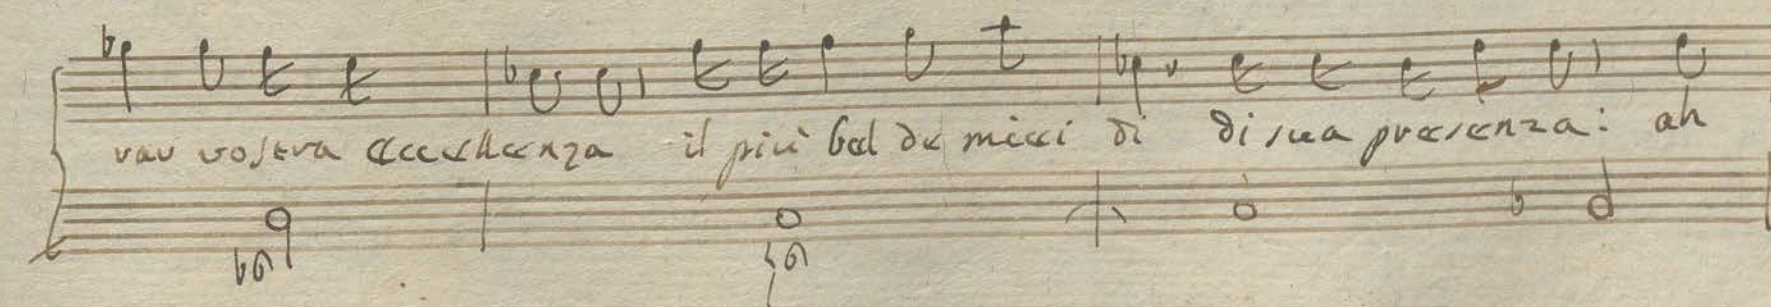 rar vostra eccellenza il più bel de miei dì di sua presenza: ah
b6
6